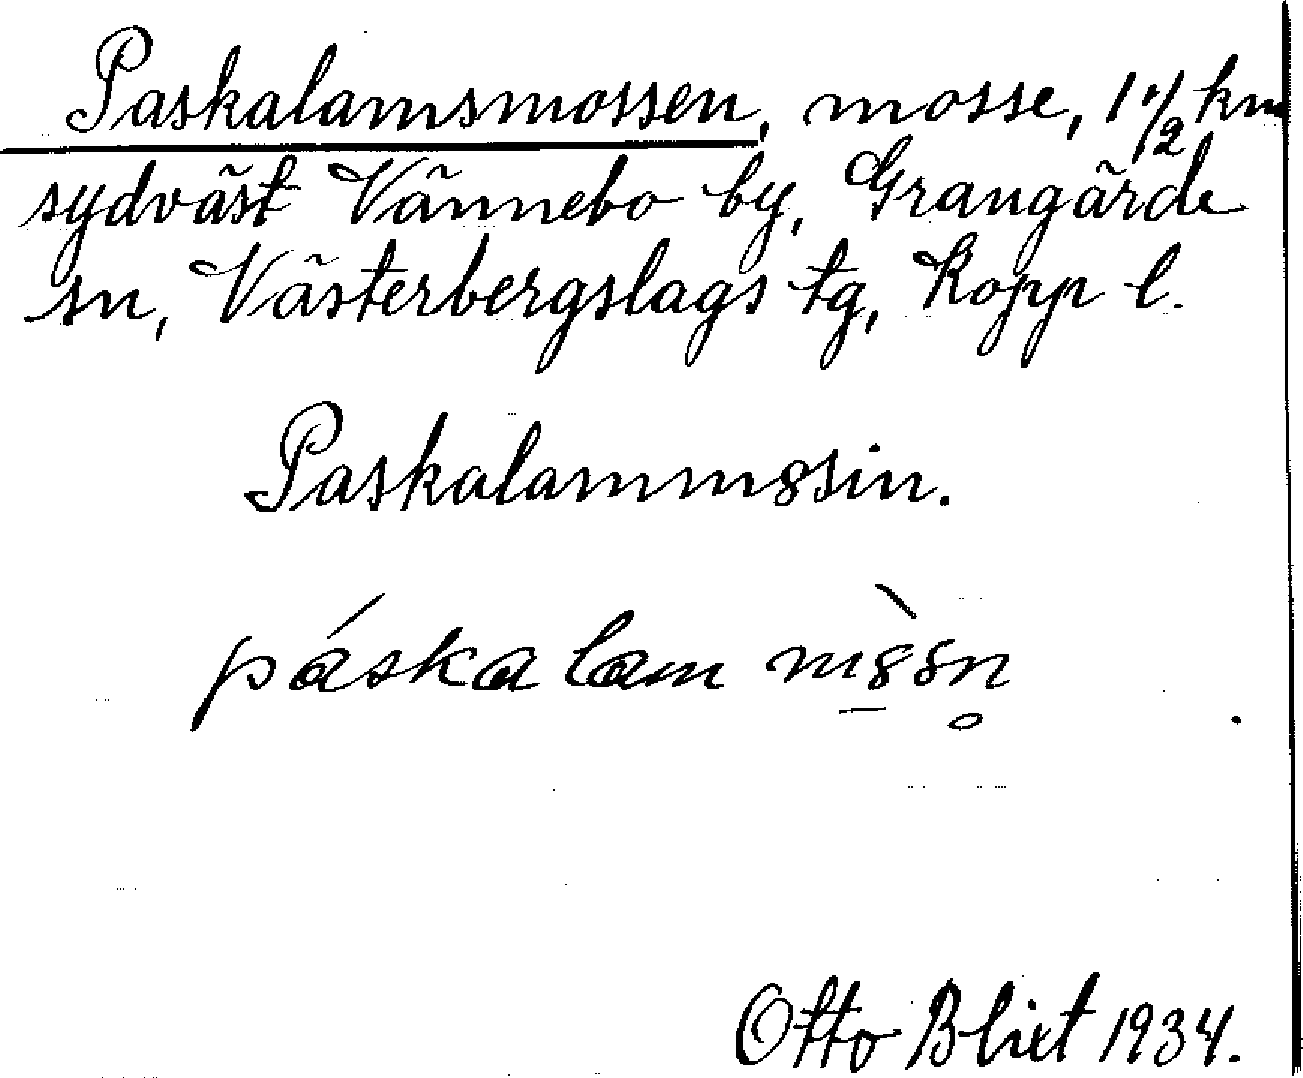 Paskalamsmossen, mosse, 1 1/2 km
sydväst Vännebo by, Grangärde
sn, Västerbergslags tg, Kopp l.
Paskalamm8sin.
páskalam m8̀sn̥
Otto Blixt 1934.